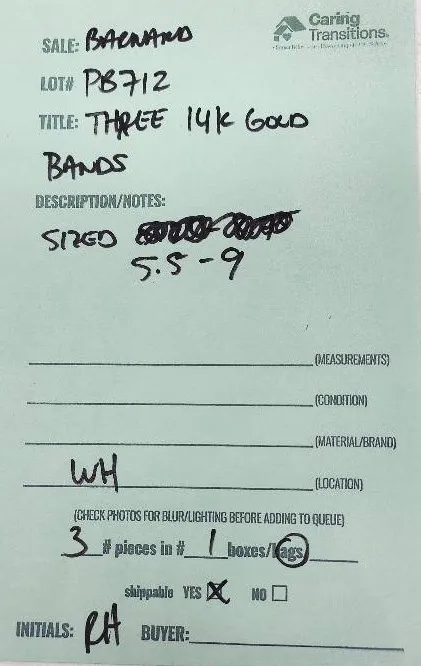 Caring
Transitions®
SALE: BARNARD
LOT# PB712
TITLE: THREE 14K GOLD
BANDS
DESCRIPTION/NOTES:
SIZED
5.5 - 9
(MEASUREMENTS)
(CONDITION)
(MATERIAL/BRAND)
WH (LOCATION)
(CHECK PHOTOS FOR BLUR/LIGHTING BEFORE ADDING TO QUEUE)
3 # pieces in # 1 boxes/bags
shippable YES ☒ NO ☐
INITIALS: RH BUYER: